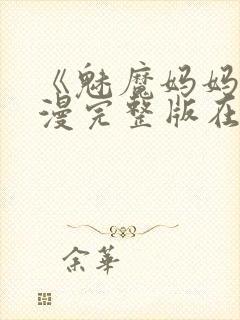 《魅魔妈妈
漫完整版在
余华